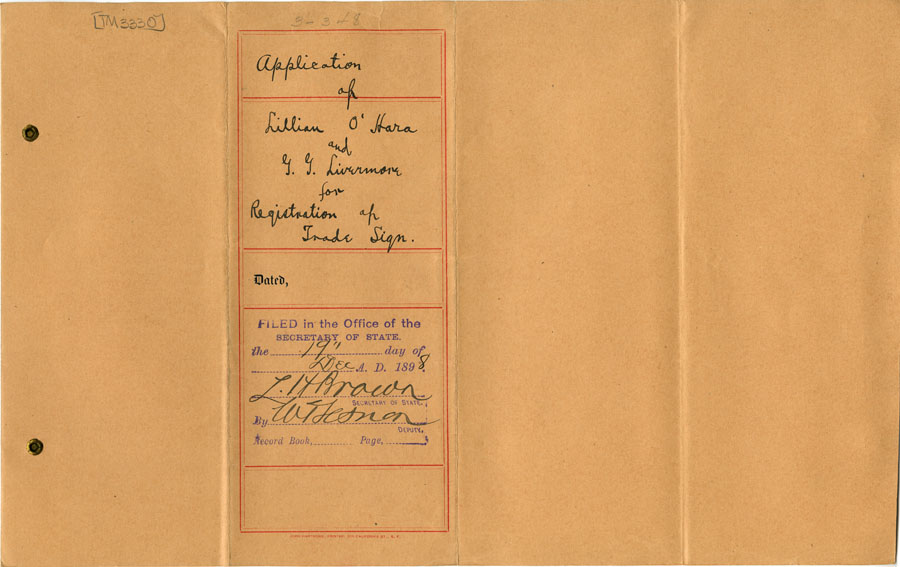 [TM3330]
Application
of
Lillian O'Hara
and
G. G. Livermore
for
Registration of
Trade Sign.
Dated,
FILED in the Office of the
SECRETARY OF STATE.
the 19" day of
Dec A. D. 1898
L. H Brown
SECRETARY OF STATE.
By
DEPUTY.
Record Book, Page,